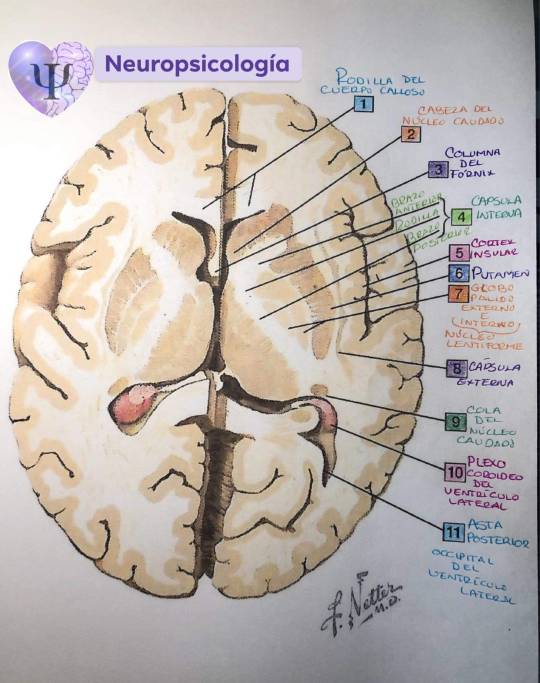 Ψ
Neuropsicología
RODILLA DEL
CUERPO CALLOSO
1
CABEZA DEL
NÚCLEO CAUDADO
2
COLUMNA
DEL
FÓRNIX
3
BRAZO
ANTERIOR
RODILLA
BRAZO
POSTERIOR
4
CAPSULA
INTERNA
5
CORTEX
INSULAR
6
PUTAMEN
7
GLOBO
PALIDO
EXTERNO
E
(INTERNO)
NÚCLEO
LENTIFORME
8
CAPSULA
EXTERNA
9
COLA
DEL
NÚCLEO
CAUDADO
10
PLEXO
COROIDEO
DEL
VENTRÍCULO
LATERAL
11
ASTA
POSTERIOR
OCCIPITAL
DEL
VENTRÍCULO
LATERAL
F. Netter
M.D.